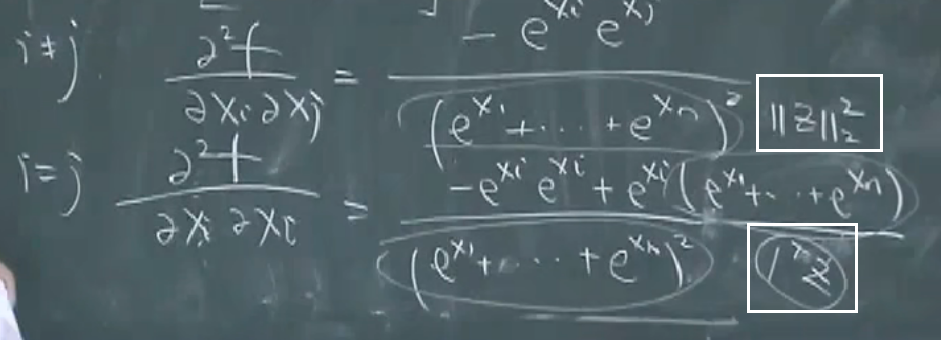 i≠j ∂²f/∂xᵢ∂xⱼ = − e^{xᵢ} e^{xⱼ} / (e^{x₁}+⋯+e^{xₙ})² ‖z‖₂²
i=j ∂²f/∂xᵢ∂xᵢ = −e^{xᵢ} e^{xᵢ} + e^{xᵢ}(e^{x₁}+⋯+e^{xₙ}) / (e^{x₁}+⋯+e^{xₙ})² 1ᵀz